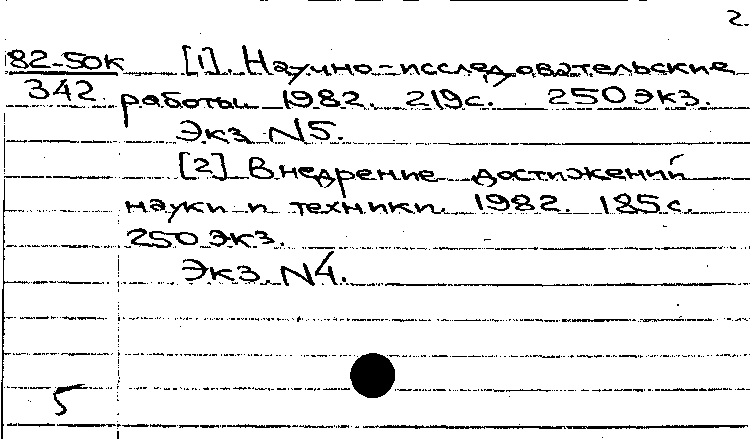 2.
82-50К [1]. Научно-исследовательские
342 работы. 1982. 219с. 250 экз.
Экз. N5.
[2] Внедрение достижений
науки и техники. 1982. 185с.
250 экз.
Экз. N4.
5